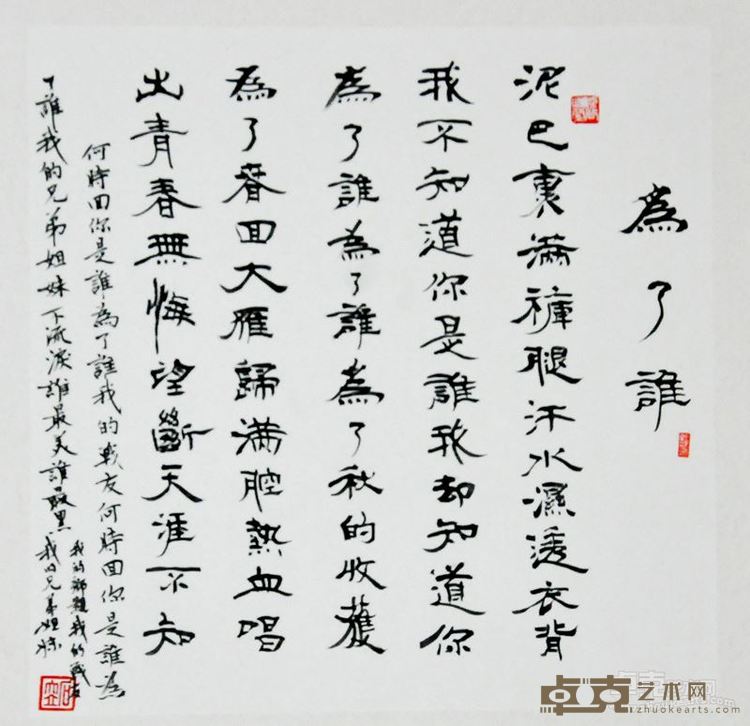 為了誰
泥巴裹滿褲腿汗水濕透衣背
我不知道你是誰我却知道你
為了誰為了誰為了秋的收獲
為了春回大雁歸滿腔熱血唱
出青春無悔望斷天涯不知
何時回你是誰為了誰我的戰友何時回你是誰為
了誰我的兄弟姐妹不流淚誰最美誰最累
我的鄉親我的戰友
我的兄弟姐妹
卓克艺术网
zhuokearts.com